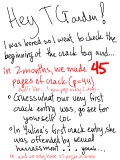 Hey TGarden!
I was bored so I went to check the
beginning of the crack bag and...
in 2 months, we made 45
pages of crack (p=44)
that's like... new pop every 2 days
Guess what our very first
crack entry was, go see for
yourself lol
In Yulina's first crack entry, she
was offended by sexual
harassment... yeah...